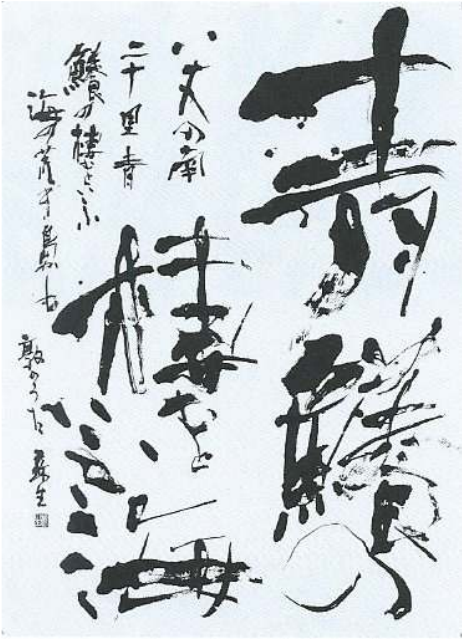 青鱶の
棲むと
いふ海
八丈の南
二十里青
鱶の棲むといふ
海の荒き島
敦のうた